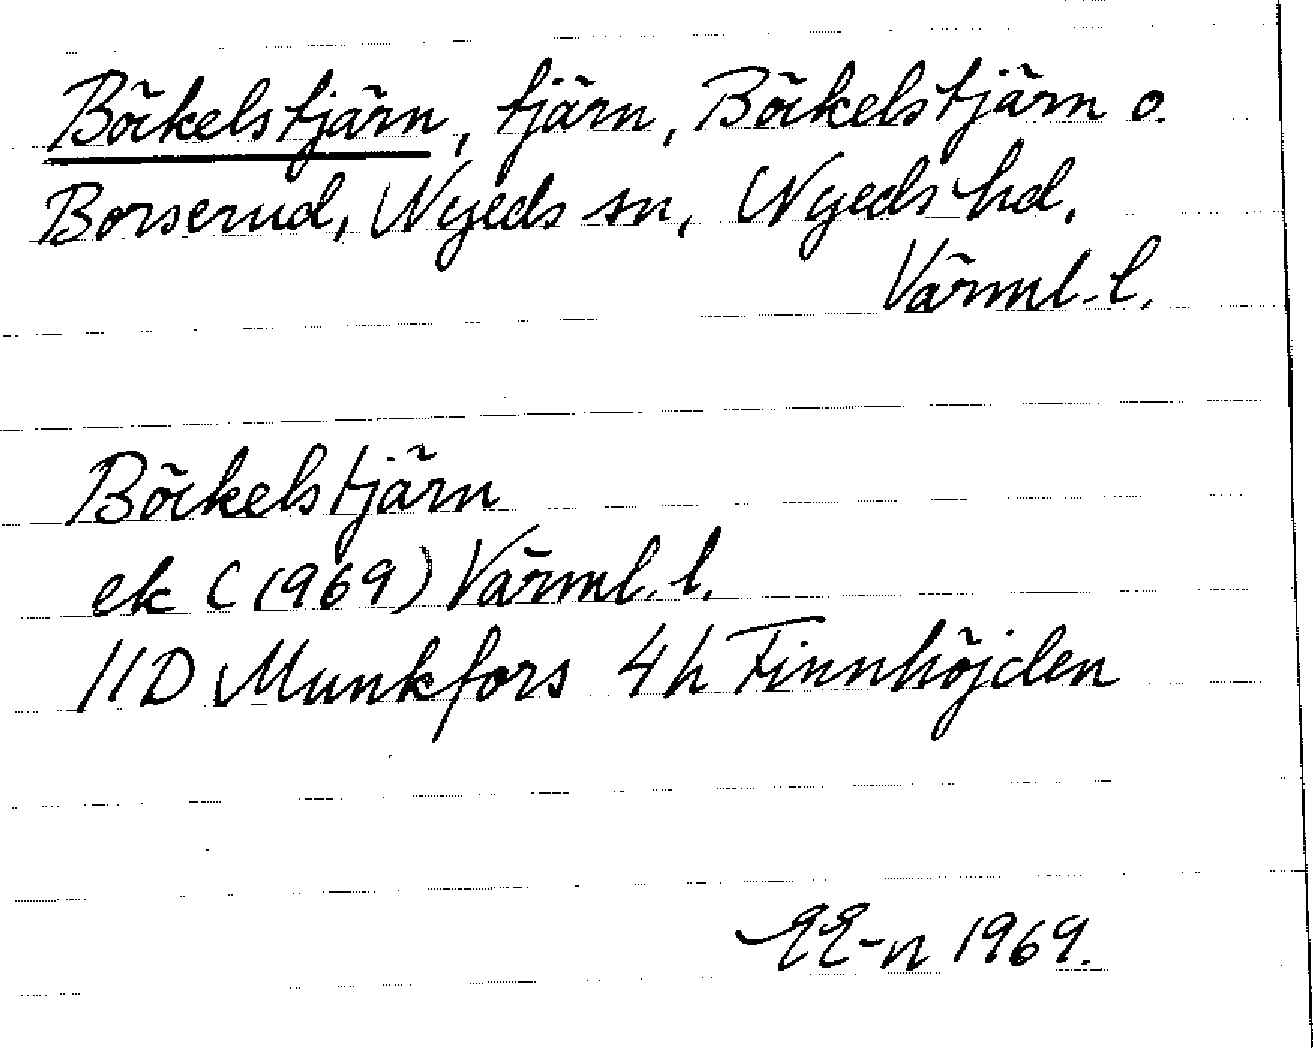 Böckelstjärn, tjärn, Böckelstjärn o.
Borserud, Nyeds sn, Nyeds hd.
Värml. l.
Böckelstjärn
ek C (1969) Värml. l.
11D Munkfors 4h Finnhöjden
EE-n 1969.